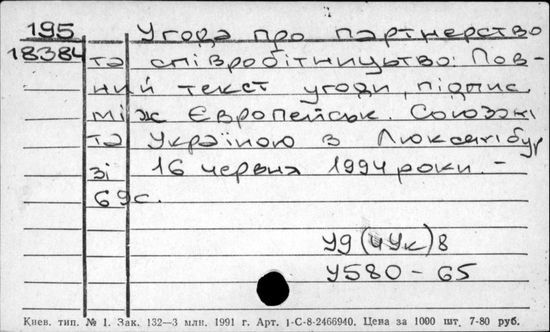 195 Угода про партнерство
18384 та співробітництво: Пов-
ний текст угоди, підпис.
між Європейськ. Союзом
та Україною в Люксембур
зі 16 червня 1994 роки. -
69с.
У9(4Ук)8
У580-65
Киев. тип. № 1. Зак. 132—3 млн. 1991 г. Арт. 1-С-8-2466940. Цена за 1000 шт. 7-80 руб.